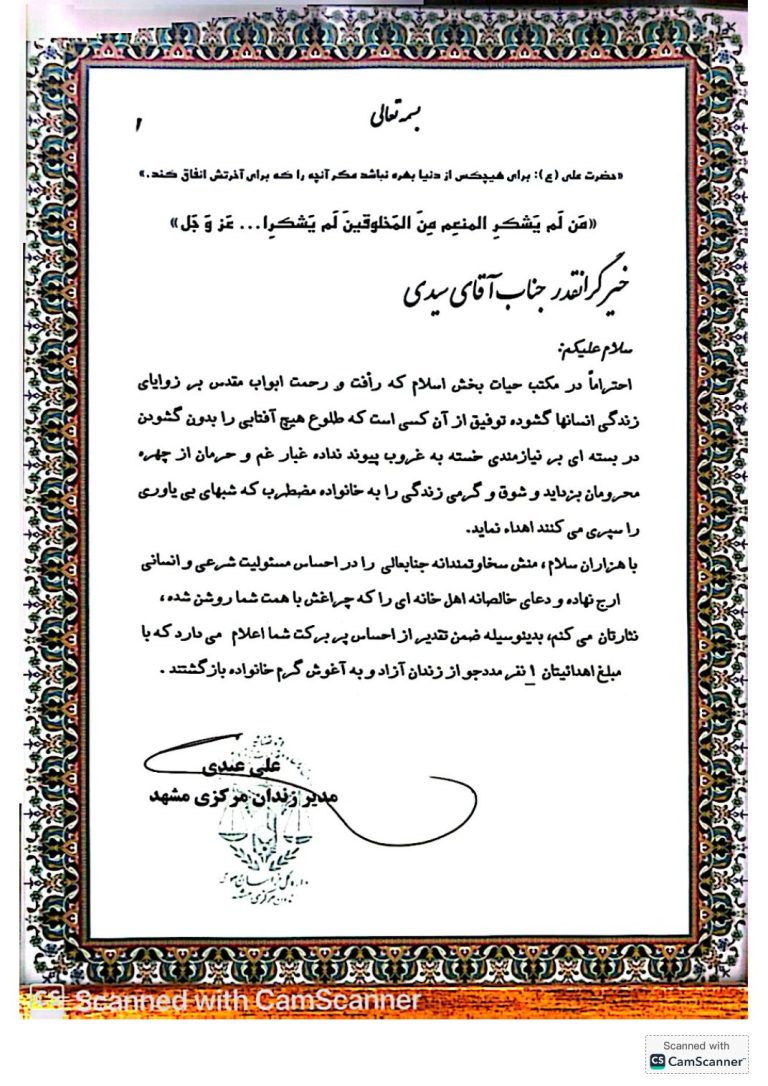 بسمه تعالی
«حضرت علی (ع): برای هیچکس از دنیا بهره نباشد مگر آنچه را که برای آخرتش انفاق کند.»
«مَن لَم یَشکرِ المنعِم مِنَ المَخلوقینَ لَم یَشکرِا... عَز وَ جَل»
خیر گرانقدر جناب آقای سیدی
سلام علیکم:
احتراماً در مکتب حیات بخش اسلام که رأفت و رحمت ابواب مقدس بر زوایای
زندگی انسانها گشوده توفیق از آن کسی است که طلوع هیچ آفتابی را بدون گشودن
در بسته ای بر نیازمندی خسته به غروب پیوند نداده غبار غم و حرمان از چهره
محرومان بزداید و شوق و گرمی زندگی را به خانواده مضطرب که شبهای بی یاوری
را سپری می کنند اهداء نماید.
با هزاران سلام، منش سخاوتمندانه جنابعالی را در احساس مسئولیت شرعی و انسانی
ارج نهاده و دعای خالصانه اهل خانه ای را که چراغش با همت شما روشن شده،
نثارتان می کنم، بدینوسیله ضمن تقدیر از احساس پر برکت شما اعلام می دارد که با
مبلغ اهدائیتان 1 نفر مددجو از زندان آزاد و به آغوش گرم خانواده بازگشتند.
علی عبدی
مدیر زندان مرکزی مشهد
CS Scanned with CamScanner
Scanned with
CS CamScanner